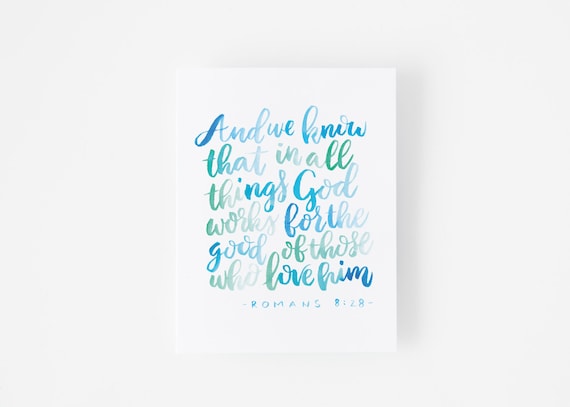 And we know
that in all
things God
works for the
good of those
who love him
-ROMANS 8:28-